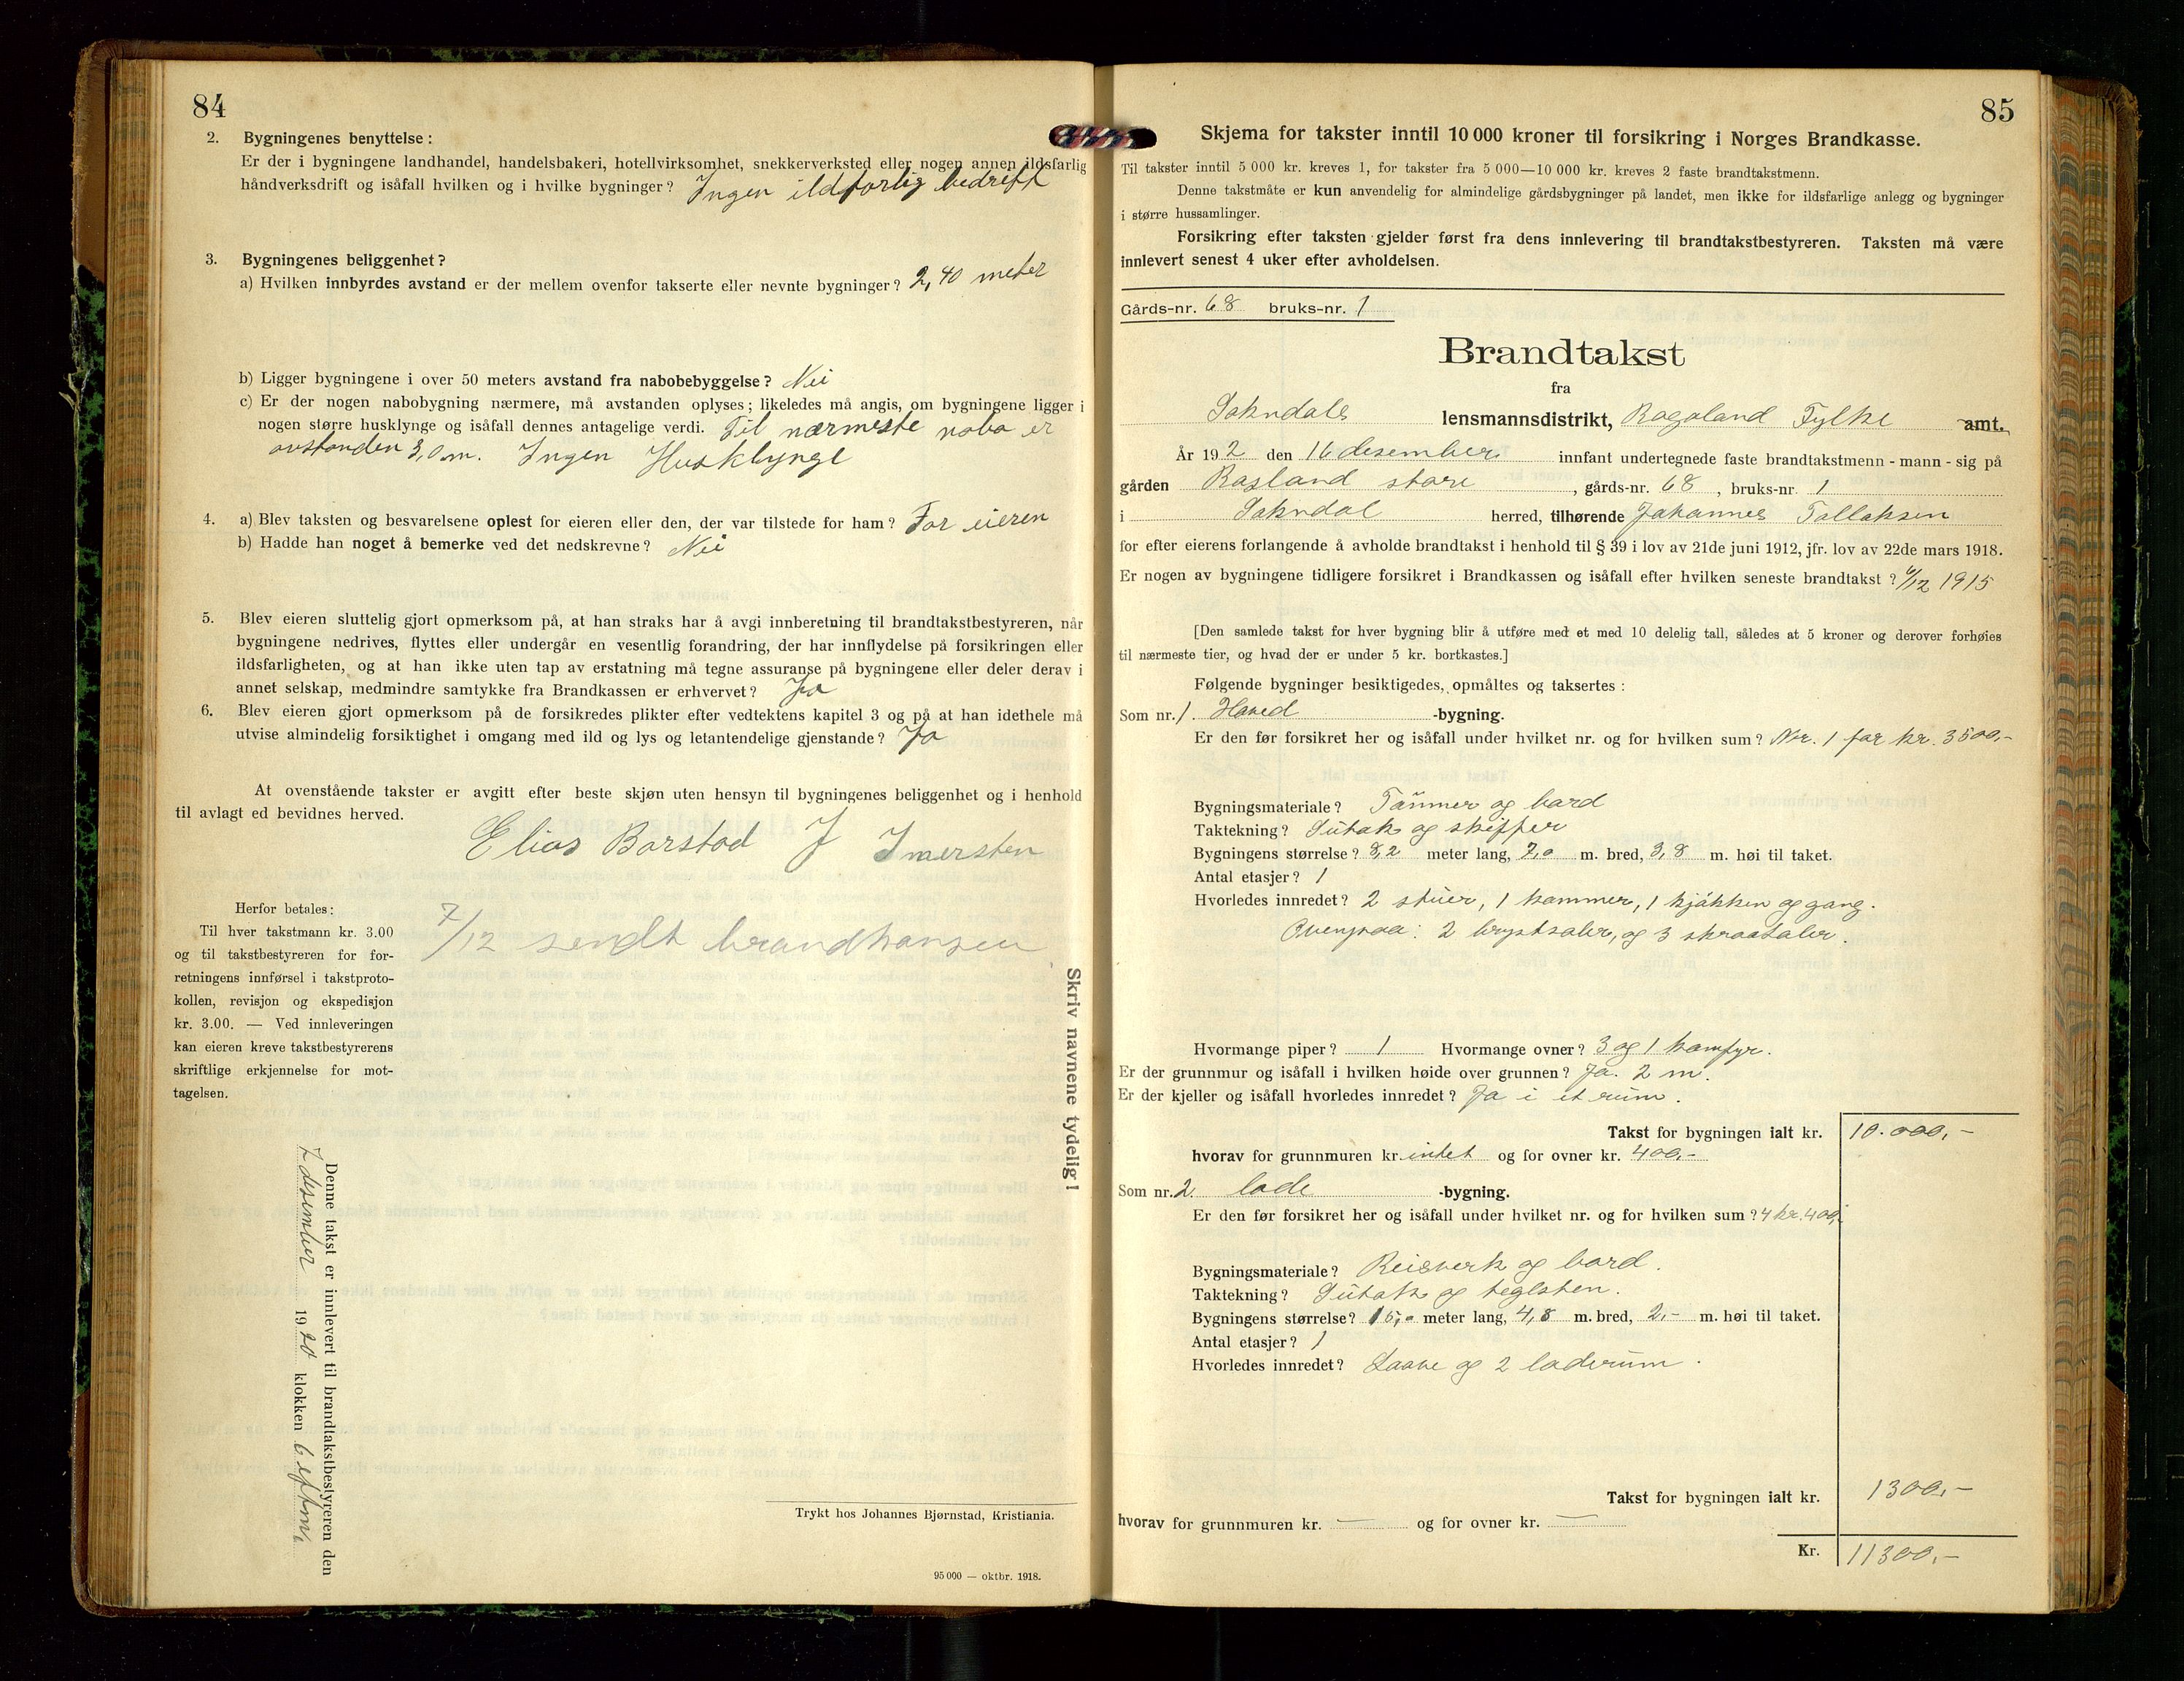 84
2. Bygningenes benyttelse:
Er der i bygningene landhandel, handelsbakeri, hotellvirksomhet, snekkerverksted eller nogen annen ildsfarlig
håndverksdrift og isåfall hvilken og i hvilke bygninger? Ingen ildsfarlig bedrift
3. Bygningenes beliggenhet?
a) Hvilken innbyrdes avstand er der mellem ovenfor takserte eller nevnte bygninger? 2,40 meter
b) Ligger bygningene i over 50 meters avstand fra nabobebyggelse? Nei
c) Er der nogen nabobygning nærmere, må avstanden oplyses; likeledes må angis, om bygningene ligger i
nogen større husklynge og isåfall dennes antagelige verdi. Til nærmeste nabo er
avstanden 3,0 m. Ingen Husklynge
4. a) Blev taksten og besvarelsene oplest for eieren eller den, der var tilstede for ham? For eieren
b) Hadde han noget å bemerke ved det nedskrevne? Nei
5. Blev eieren sluttelig gjort opmerksom på, at han straks har å avgi innberetning til brandtakstbestyreren, når
bygningene nedrives, flyttes eller undergår en vesentlig forandring, der har innflydelse på forsikringen eller
ildsfarligheten, og at han ikke uten tap av erstatning må tegne assuranse på bygningene eller deler derav i
annet selskap, medmindre samtykke fra Brandkassen er erhvervet? Ja
6. Blev eieren gjort opmerksom på de forsikredes plikter efter vedtektens kapitel 3 og på at han idethele må
utvise almindelig forsiktighet i omgang med ild og lys og letantendelige gjenstande? Ja
At ovenstående takster er avgitt efter beste skjøn uten hensyn til bygningenes beliggenhet og i henhold
til avlagt ed bevidnes herved.
Elias Barstad J Iversten
Herfor betales:
Til hver takstmann kr. 3.00
og til takstbestyreren for for-
retningens innførsel i takstproto-
kollen, revisjon og ekspedisjon
kr. 3.00. — Ved innleveringen
kan eieren kreve takstbestyrerens
skriftlige erkjennelse for mot-
tagelsen.
7/12 sendt brandkassen
Skriv navnene tydelig!
Denne takst er innlevert til brandtakstbestyreren den
7 desember 1920 klokken 6 eftm.
Trykt hos Johannes Bjørnstad, Kristiania.
95 000 — oktbr. 1918.
85
Skjema for takster inntil 10 000 kroner til forsikring i Norges Brandkasse.
Til takster inntil 5 000 kr. kreves 1, for takster fra 5 000—10 000 kr. kreves 2 faste brandtakstmenn.
Denne takstmåte er kun anvendelig for almindelige gårdsbygninger på landet, men ikke for ildsfarlige anlegg og bygninger
i større hussamlinger.
Forsikring efter taksten gjelder først fra dens innlevering til brandtakstbestyreren. Taksten må være
innlevert senest 4 uker efter avholdelsen.
Gårds-nr. 68 bruks-nr. 1
Brandtakst
fra
Sokndals lensmannsdistrikt, Rogaland Fylke amt.
År 192 den 16 desember innfant undertegnede faste brandtakstmenn - mann - sig på
gården Rosland store, gårds-nr. 68, bruks-nr. 1
i Sokndal herred, tilhørende Johannes Tollaksen
for efter eierens forlangende å avholde brandtakst i henhold til § 39 i lov av 21de juni 1912, jfr. lov av 22de mars 1918.
Er nogen av bygningene tidligere forsikret i Brandkassen og isåfall efter hvilken seneste brandtakst? /12 1915
[Den samlede takst for hver bygning blir å utføre med et med 10 delelig tall, således at 5 kroner og derover forhøies
til nærmeste tier, og hvad der er under 5 kr. bortkastes.]
Følgende bygninger besiktigedes, opmåltes og taksertes:
Som nr. 1. Hoved -bygning.
Er den før forsikret her og isåfall under hvilket nr. og for hvilken sum? Nr. 1 for kr. 3500,-
Bygningsmateriale? Tømmer og bord
Taktekning? Sutak og skiffer
Bygningens størrelse? 8,2 meter lang, 7,0 m. bred, 3,8 m. høi til taket.
Antal etasjer? 1
Hvorledes innredet? 2 stuer, 1 kammer, 1 kjøkken og gang.
Ovenpaa: 2 brystsaler, og 3 skraasaler.
Hvormange piper? 1 Hvormange ovner? 3 og 1 komfyr.
Er der grunnmur og isåfall i hvilken høide over grunnen? Ja. 2 m.
Er der kjeller og isåfall hvorledes innredet? Ja i et rum.
Takst for bygningen ialt kr. 10.000,-
hvorav for grunnmuren kr. intet og for ovner kr. 400,-
Som nr. 2. lade -bygning.
Er den før forsikret her og isåfall under hvilket nr. og for hvilken sum? 4 kr. 400,-
Bygningsmateriale? Reisverk og bord.
Taktekning? Sutak og teglsten.
Bygningens størrelse? 15,0 meter lang, 4,8 m. bred, 2,- m. høi til taket.
Antal etasjer? 1
Hvorledes innredet? Laave og 2 laderum.
Takst for bygningen ialt kr. 1300,-
hvorav for grunnmuren kr. — og for ovner kr. —
Kr. 11300,-